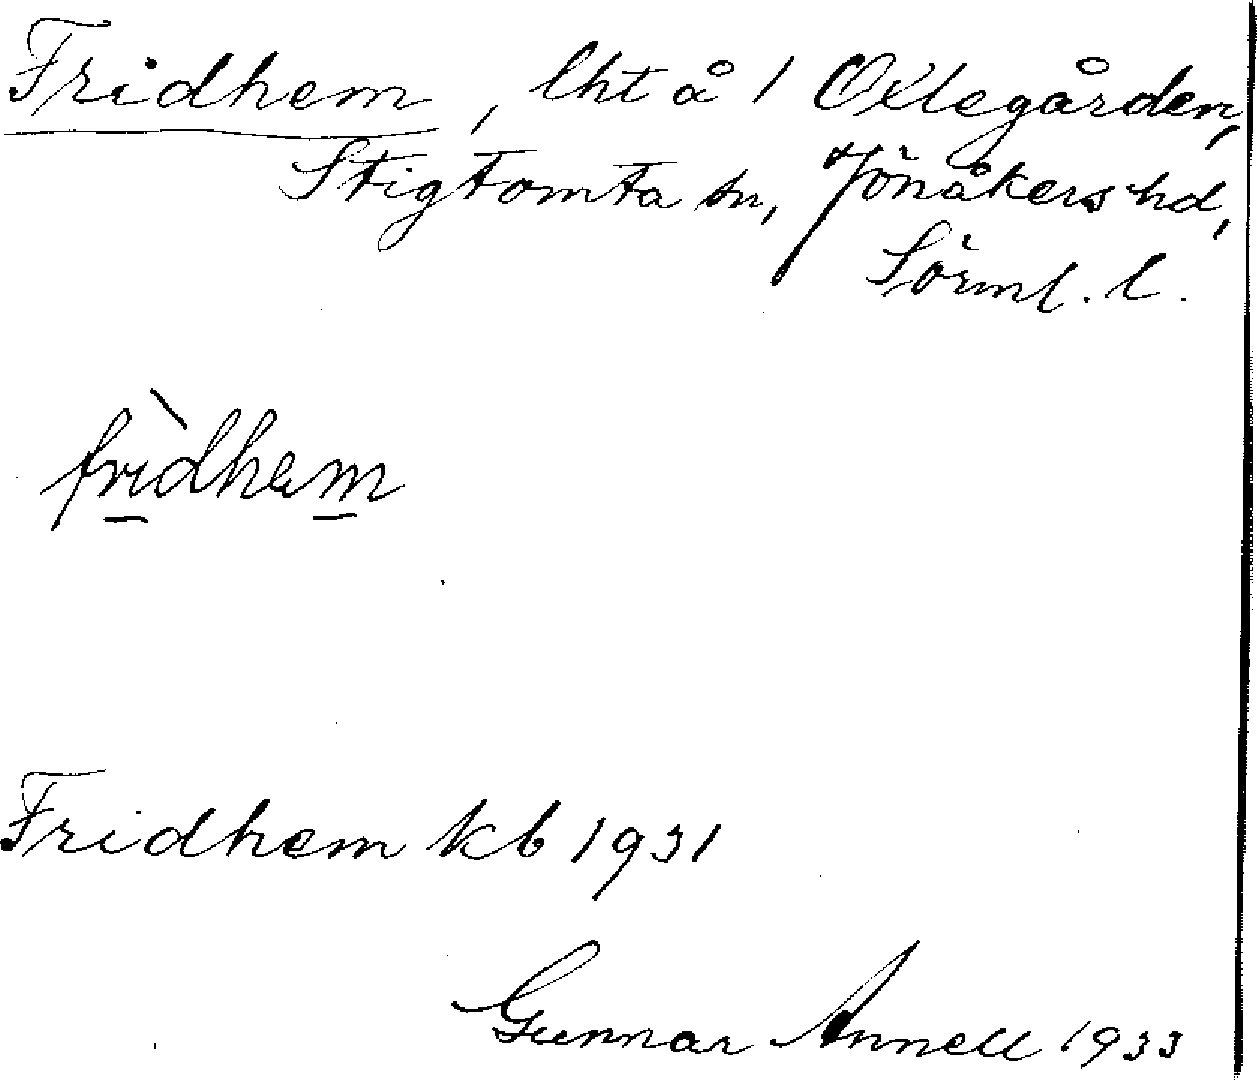 Fridhem, lht å 1 Oxlegården,
Stigtomta sn, Jönåkers hd,
Sörml. l.
frìdhem
Fridhem kb 1931
Gunnar Annell 1933